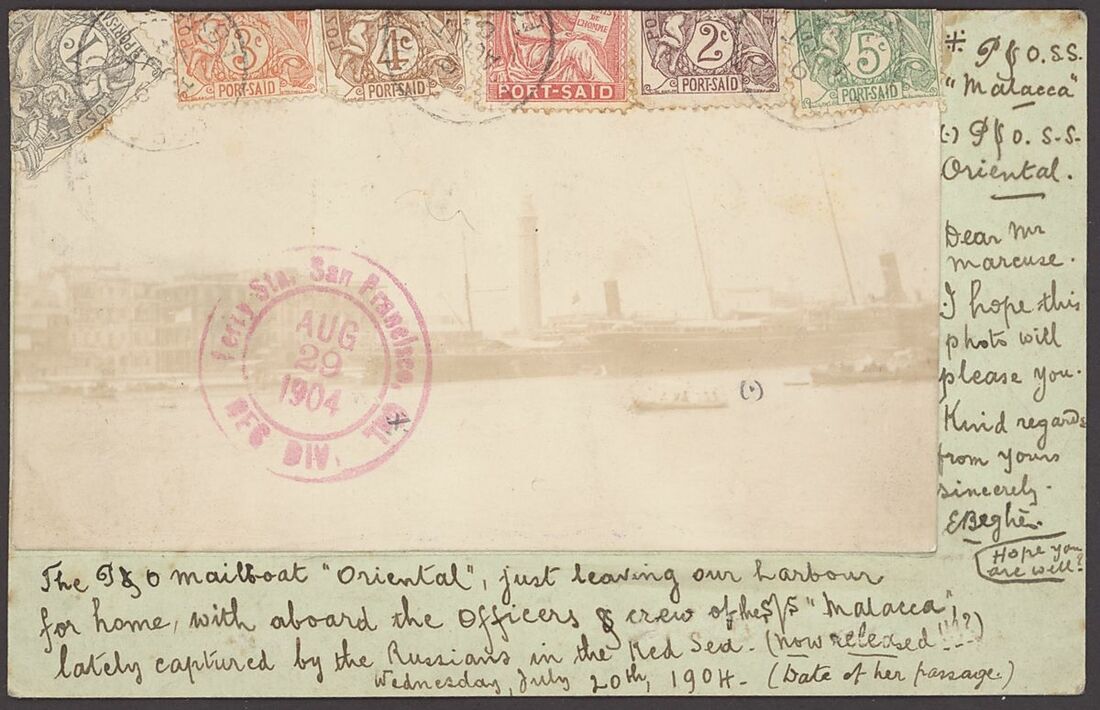 1c POSTE
3c PORT-SAID
4c PORT-SAID
DE L'HOMME PORT-SAID
2c PORT-SAID
5c PORT-SAID
* P & O. S.S.
"Malacca"
(·) P & O. S-S-
Oriental.
Dear Mr
Marcuse.
I hope this
photo will
please you.
Kind regards
from yours
sincerely.
EBeghè.
Hope you
are well?
Ferry Sta. San Francisco, CAL
AUG
29
1904
REG DIV.
(·)
The P & O mailboat "Oriental", just leaving our harbour
for home, with aboard the Officers & crew of the S/S "Malacca",
lately captured by the Russians in the Red Sea. (now released!!!?)
Wednesday, July 20th, 1904- (Date of her passage.)